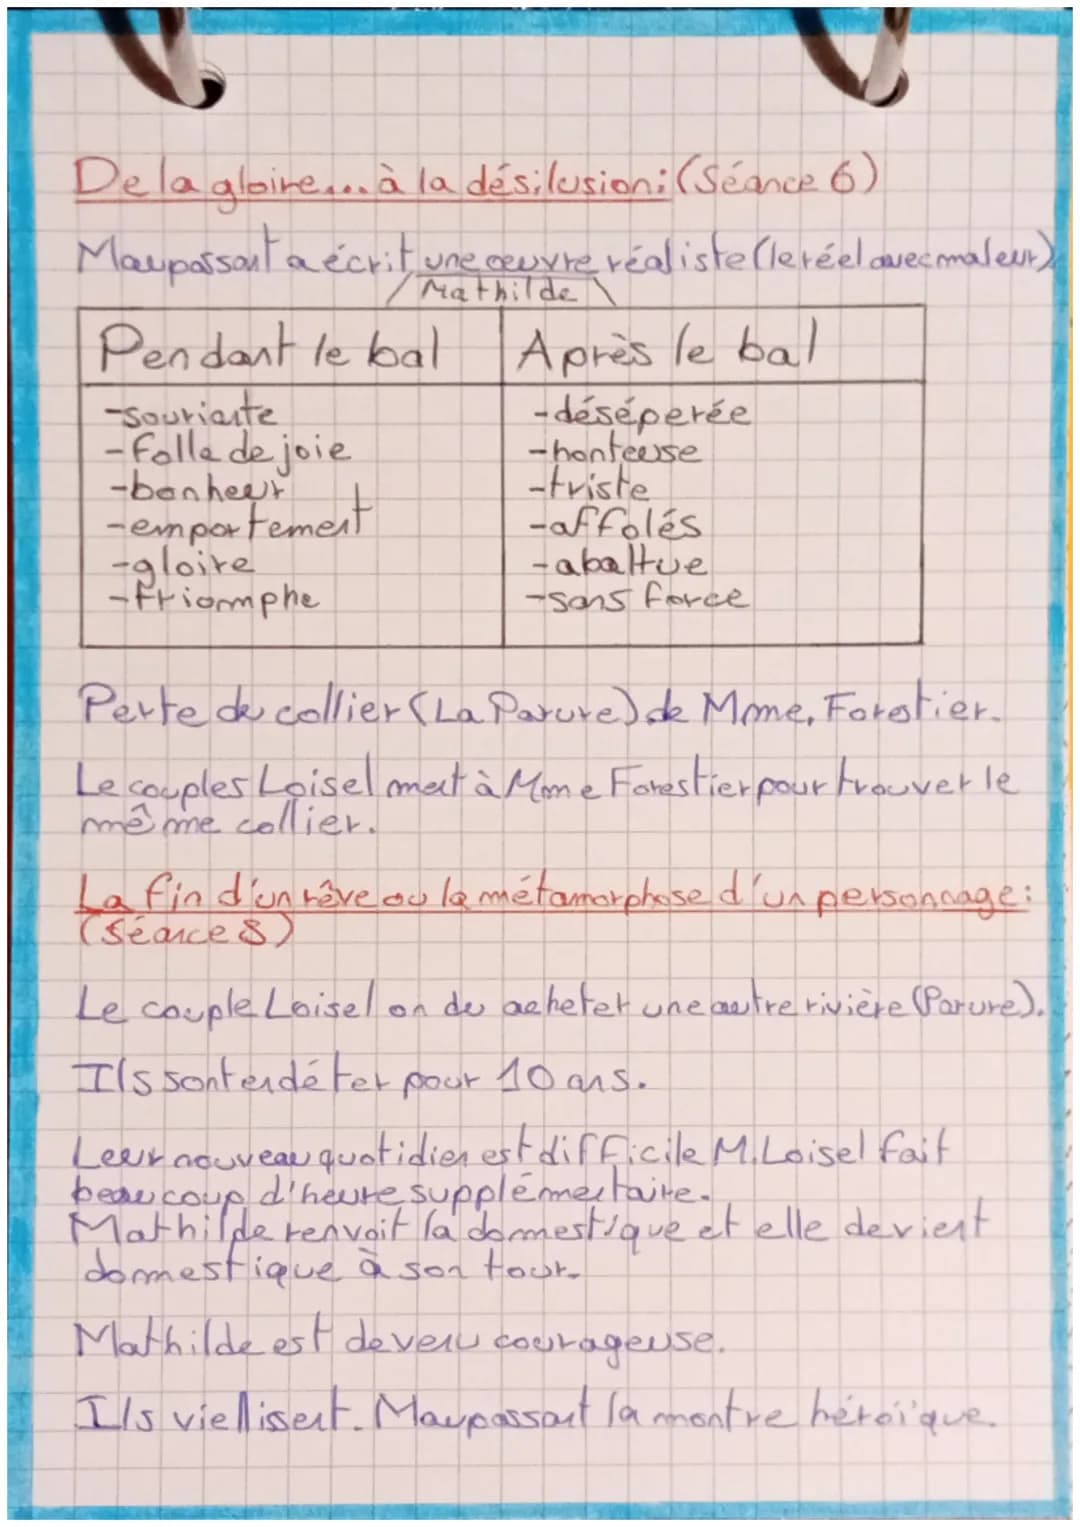 De la gloire... à la désilusion: (Séance 6)
Maupassant a écrit une œuvre réaliste (le réel avec maleur)
Mathilde
Pendant le bal
Après le bal
-souriante
-folle de joie
-bonheur
-emportement
-gloire
-triomphe
-déséperée
-honteuse
-triste
-affolés
-abattue
-sans force
Perte de collier (La Parure) de Mme, Forestier.
Le couples Loisel ment à Mme Forestier pour trouver le
même collier.
La fin d'un rêve ou la métamorphose d'un personnage:
(Séance 8)
Le couple Loisel on du acheter une autre rivière (Parure).
Ils sont endéter pour 10 ans.
Leur nouveau quotidien est difficile M.Loisel fait
beaucoup d'heure supplémentaire.
Mathilde renvoit la domestique et elle devient
domestique à son tour.
Mathilde est devenu courageuse.
Ils viellissent. Maupassant la montre héroïque.